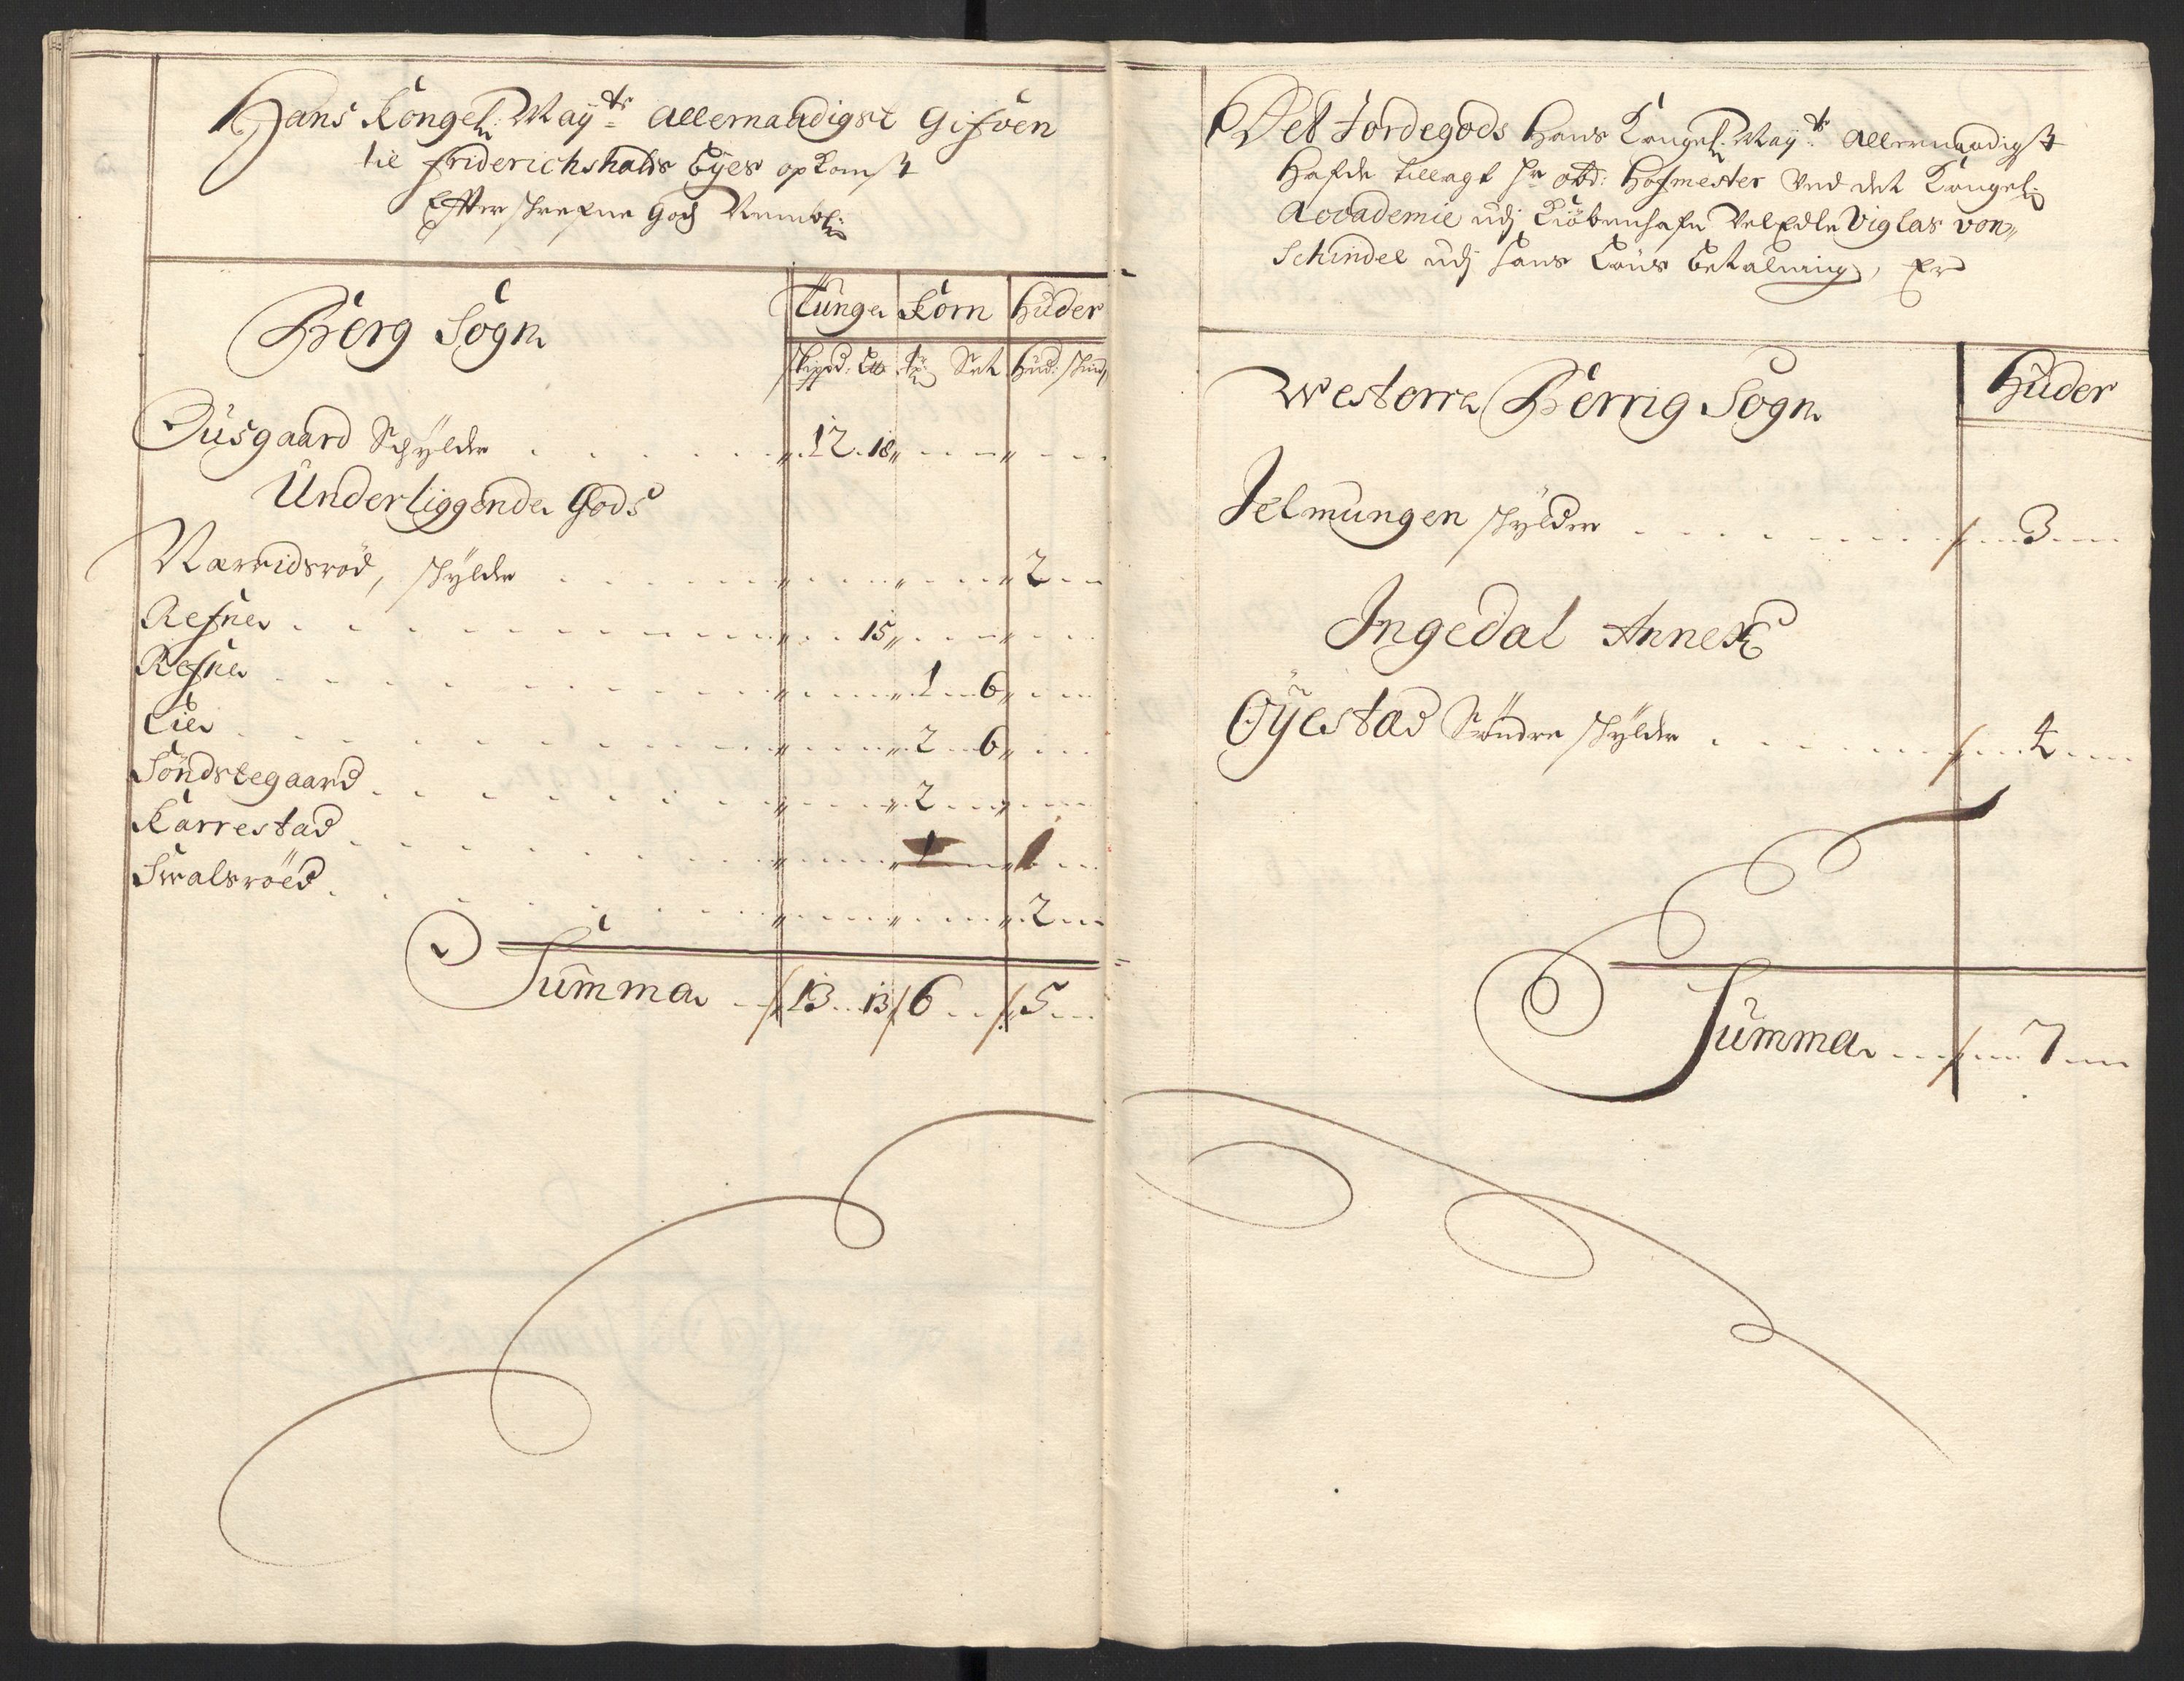 Hans Kongel: Mayts Allernaadigst Gifven
til Friderichshalds Byes opkomst
Effterschrefne Gods Nembl:
Berg Sogn
Tunge Korn Huder
Skippd: L℔ tr: Set Hud: skind
Buusgaard Schylder 12 18
Underliggende Gods
Narridsröd, skylder 2
Refne 15
Refne 1 6
Lie 2 6
Söndstegaard 2
Karrestad 1 1
Swalsröed 2
Summa 13 13 6 5
Det Jordegods Hans Kongel: Mayts Allernaadigst
Hafde tillagt Hr obr: Hofmester ved det Kongel:
Accademie udj Kiöbenhafn Velædle Viglas von
Schindel udj Hans Løns betalning, Er
Westerre Berrig Sogn
Huder
Jelmungen skylder 3
Ingedal Annex
Öyestad Söndre skylder 4
Summa 7